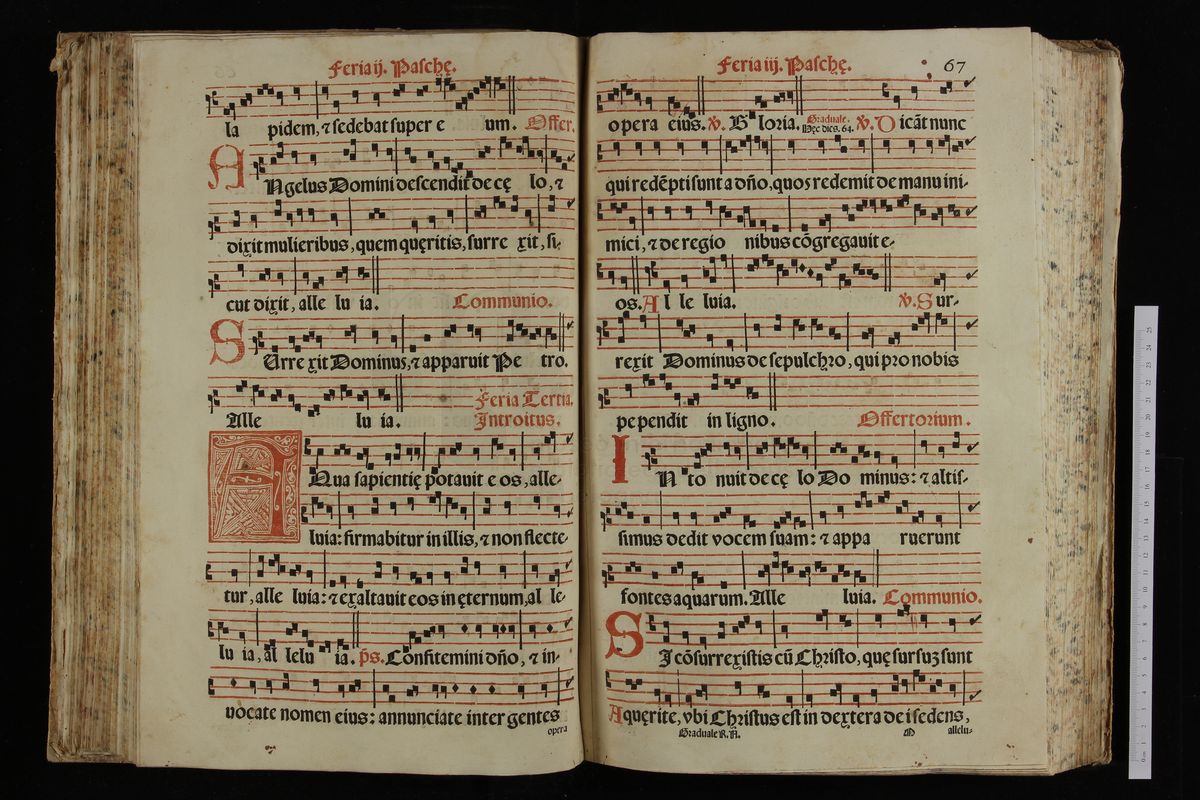 Feria ij. Paschę.
la pidem, ⁊ sedebat super e um. Offer.
ANgelus Domini descendit de cę lo, ⁊
dixit mulieribus, quem quęritis, surre xit, si-
cut dixit, alle lu ia. Communio.
SUrre xit Dominus, ⁊ apparuit Pe tro.
Alle lu ia. Feria Tertia.
Introitus.
AQua sapientię potauit e os, alle-
luia: firmabitur in illis, ⁊ non flecte-
tur, alle luia: ⁊ exaltauit eos in ęternum, al le-
lu ia, al lelu ia. ps. Confitemini dño, ⁊ in-
uocate nomen eius: annunciate inter gentes
opera
Feria iij. Paschę. 67
opera eius. ℣. G loria. Graduale. Hęc dies. 64. ℣. D icãt nunc
qui redẽpti sunt a dño, quos redemit de manu ini-
mici, ⁊ de regio nibus cõgregauit e-
os. Al le luia. ℣. Sur-
rexit Dominus de sepulchro, qui pro nobis
pependit in ligno. Offertorium.
IN to nuit de cę lo Do minus: ⁊ altis-
simus dedit vocem suam: ⁊ appa ruerunt
fontes aquarum. Alle luia. Communio.
SI cõsurrexistis cũ Christo, quę sursuȝ sunt
quęrite, vbi Christus est in dextera dei sedens,
Graduale R. A. allelu-